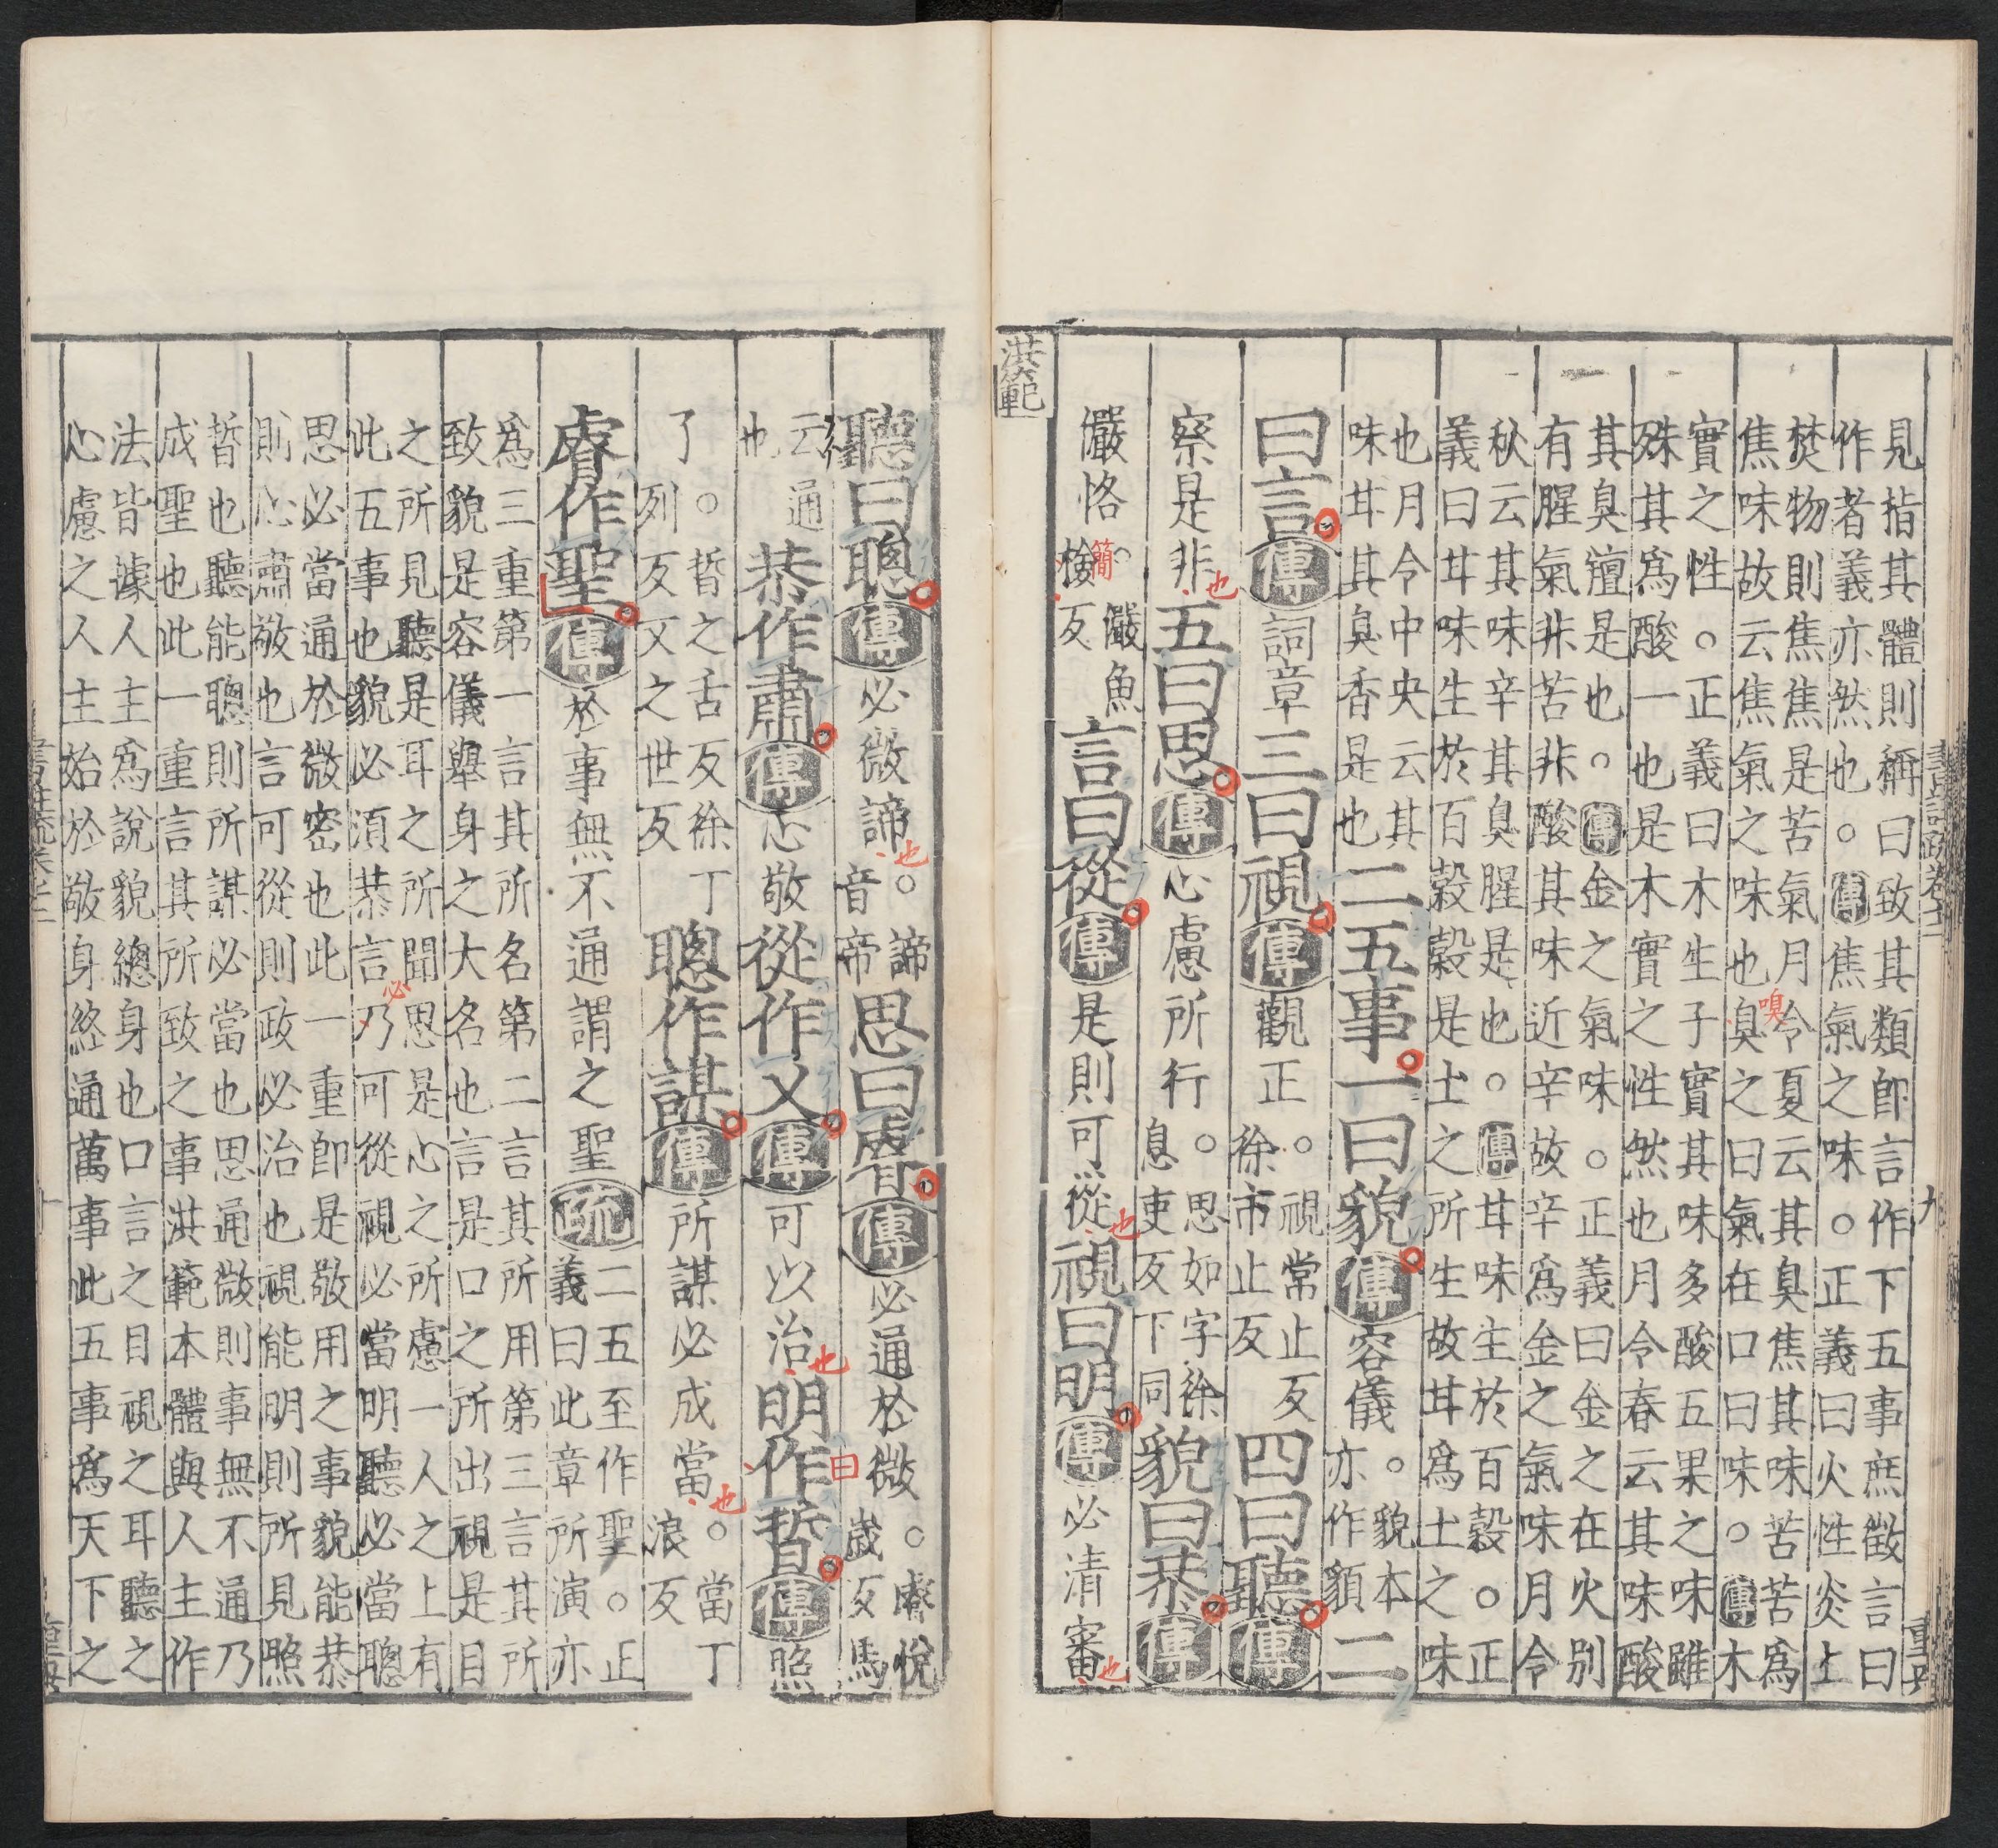 見指其體則稱曰致其類即言作下五事庶徵言曰
作者義亦然也。傳焦氣之味。正義曰火性炎上
焚物則焦焦是苦氣月令夏云其臭焦其味苦苦爲
焦味故云焦氣之味也臭之曰氣在口曰味。傳木
嗅
實之性。正義曰木生子實其味多酸五果之味雖
殊其爲酸一也是木實之性然也月令春云其味酸
其臭羶是也。傳金之氣味。正義曰金之在火别
有腥氣非苦非酸其味近辛故辛爲金之氣味月令
秋云其味辛其臭腥是也。傳甘味生於百穀。正
義曰甘味生於百穀穀是土之所生故甘爲土之味
也月令中央云其
味甘其臭香是也
二五事一曰貌傳容儀
。貌本
亦作䫉
二
曰言傳詞章三曰視傳觀正
。視常止反
徐市止反
四曰聽傳
察是非也五曰思傳心慮所行
。思如字徐
息吏反下同
貌曰恭傳
儼恪
。儼魚
檢反
簡
言曰從傳是則可從也視曰明傳必清審也
洪範
書註疏卷十二
九
聽曰聰傳必微諦也
。諦
音帝
思曰睿傳必通於微
。睿悅
歲反馬
經
云通
也
恭作肅傳心敬從作乂傳可以治也明作晢傳照
曰
了
。晢之舌反徐丁
列反又之世反
聰作謀傳所謀必成當也
。當丁
浪反
睿作聖傳於事無不通謂之聖疏
二五至作聖。正
義曰此章所演亦
爲三重第一言其所名第二言其所用第三言其所
致貌是容儀舉身之大名也言是口之所出視是目
之所見聽是耳之所聞思是心之所慮一人之上有
此五事也貌必須恭言乃可從視必當明聽必當聰
必
思必當通於微密也此一重即是敬用之事貌能恭
則心肅敬也言可從則政必治也視能明則所見照
晢也聽能聰則所謀必當也思通微則事無不通乃
成聖也此一重言其所致之事洪範本體與人主作
法皆據人主爲說貌總身也口言之目視之耳聽之
心慮之人主始於敬身終通萬事此五事爲天下之
書註疏卷十二
十